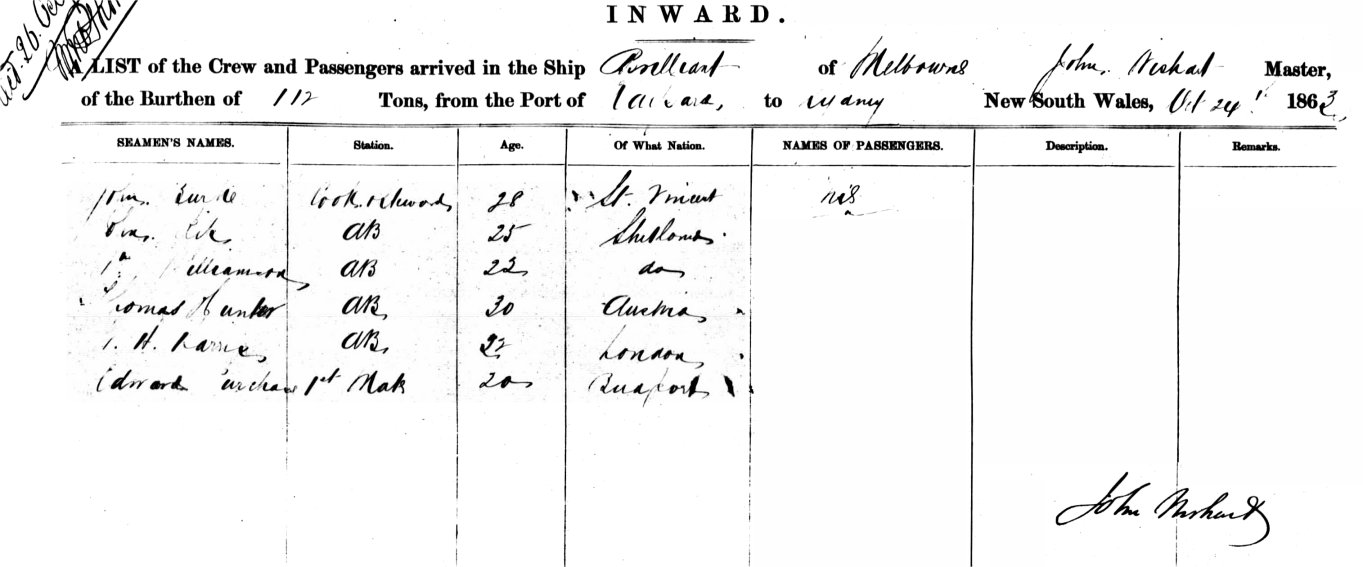 Oct. 26.
INWARD.
A LIST of the Crew and Passengers arrived in the Ship Brilleant of Melbourne John Wishart Master,
of the Burthen of 112 Tons, from the Port of to Sydney New South Wales, Oct 24th 1863
SEAMEN'S NAMES. Station. Age. Of What Nation. NAMES OF PASSENGERS. Description. Remarks.
John Burke Cook & Steward 28 St. Vincent nil
AB 25 Shetland
Williamson AB 22 do
Thomas Hunter AB 30 Austria
H. AB 22 London
Edward 1st Mate 20
John Wishart